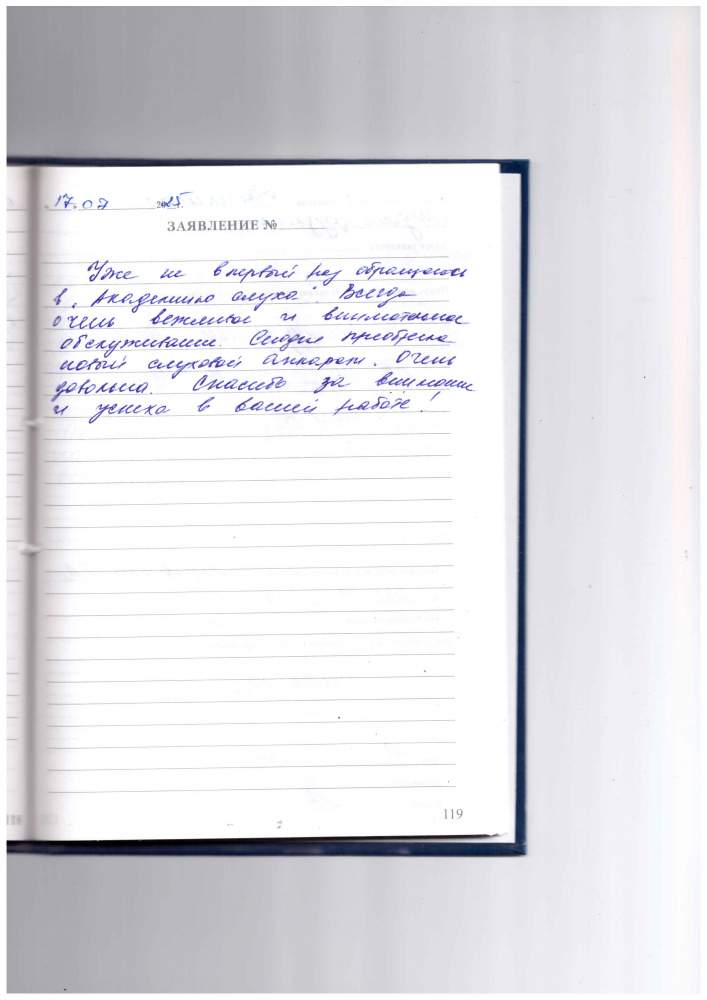 17.07 2025г.
ЗАЯВЛЕНИЕ №
Уже не впервый раз обращаюсь
в "Академию слуха" Всегда
очень вежливое и внимательное
обслуживание. Сегодня приобрела
новый слуховой аппарат. Очень
довольна. Спасибо за внимание
и успеха в вашей работе!
119